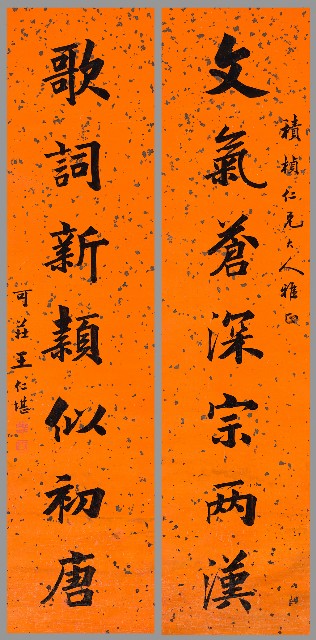 積楨仁兄大人雅正
文氣蒼深宗两漢
歌詞新頴似初唐
可莊王仁堪